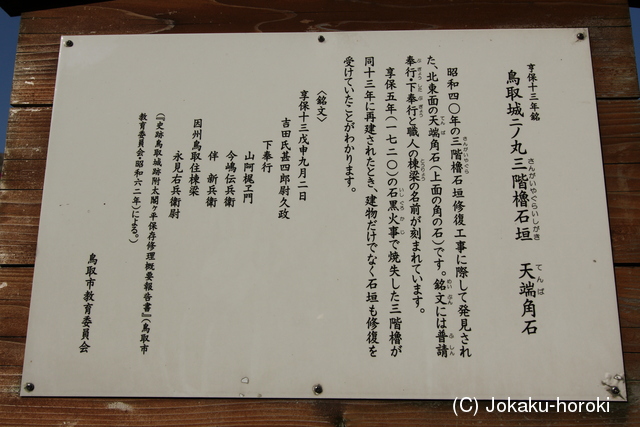 享保十三年銘
鳥取城二ノ丸三階櫓石垣　天端角石
さんがいやぐらいしがき　てんば
昭和四〇年の三階櫓石垣修復工事に際して発見され
さんがいやぐら
た、北東面の天端角石（上面の角の石）です。銘文には普請
てんば　めいぶん　ふしん
奉行・下奉行と職人の棟梁の名前が刻まれています。
ぶぎょう　したぶぎょう　とうりょう
享保五年（一七二〇）の石黒火事で焼失した三階櫓が
いしぐろかじ
同十三年に再建されたとき、建物だけでなく石垣も修復を
受けていたことがわかります。
〈銘文〉
享保十三戊申九月二日
吉田氏甚四郎尉久政
下奉行
山阿梶ヱ門
今嶋伝兵衛
伴　新兵衛
因州鳥取住棟梁
永見右兵衛尉
（『史跡鳥取城跡附太閤ヶ平保存修理概要報告書』（鳥取市
教育委員会・昭和六二年）による。）
鳥取市教育委員会
(C) Jokaku-horoki